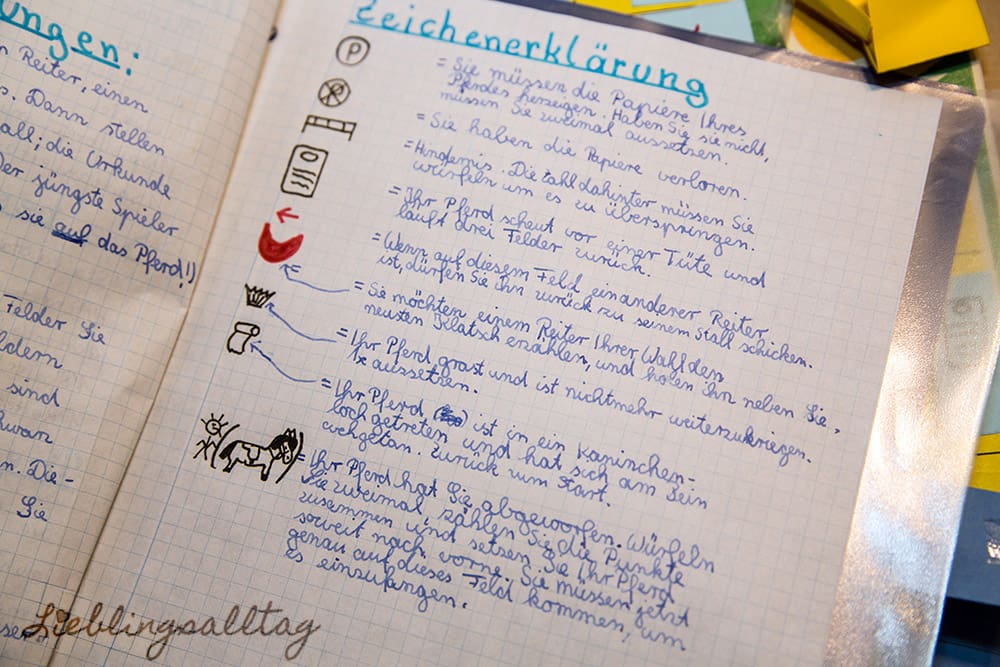 ungen:
Reiter, einen
s. Dann stellen
all; die Urkunde
Der jüngste Spieler
sie auf das Pferd!)
Felder Sie
ldern
sind
n. Die-
Sie
Zeichenerklärung
P
= Sie müssen die Papiere Ihres
Pferdes herzeigen. Haben Sie sie nicht,
müssen Sie zweimal aussetzen.
= Sie haben die Papiere verloren.
= Hindernis. Die Zahl dahinter müssen Sie
würfeln um es zu überspringen.
= Ihr Pferd scheut vor einer Tüte und
läuft drei Felder zurück.
= (Wenn auf diesem Feld ein anderer Reiter
ist, dürfen Sie ihn zurück zu seinem Stall schicken.
= Sie möchten einem Reiter Ihrer Wahl den
neusten Klatsch erzählen, und holen ihn neben Sie.
= Ihr Pferd grast und ist nichtmehr weiterzukriegen.
1x aussetzen.
= Ihr Pferd ist in ein Kaninchen-
loch getreten und hat sich am Bein
wehgetan. Zurück zum Start.
= Ihr Pferd hat Sie abgeworfen. Würfeln
Sie zweimal, zählen Sie die Punkte
zusammen und setzen Sie ihr Pferd
soweit nach vorne. Sie müssen jetzt
genau auf dieses Feld kommen, um
es einzufangen.
Lieblingsalltag